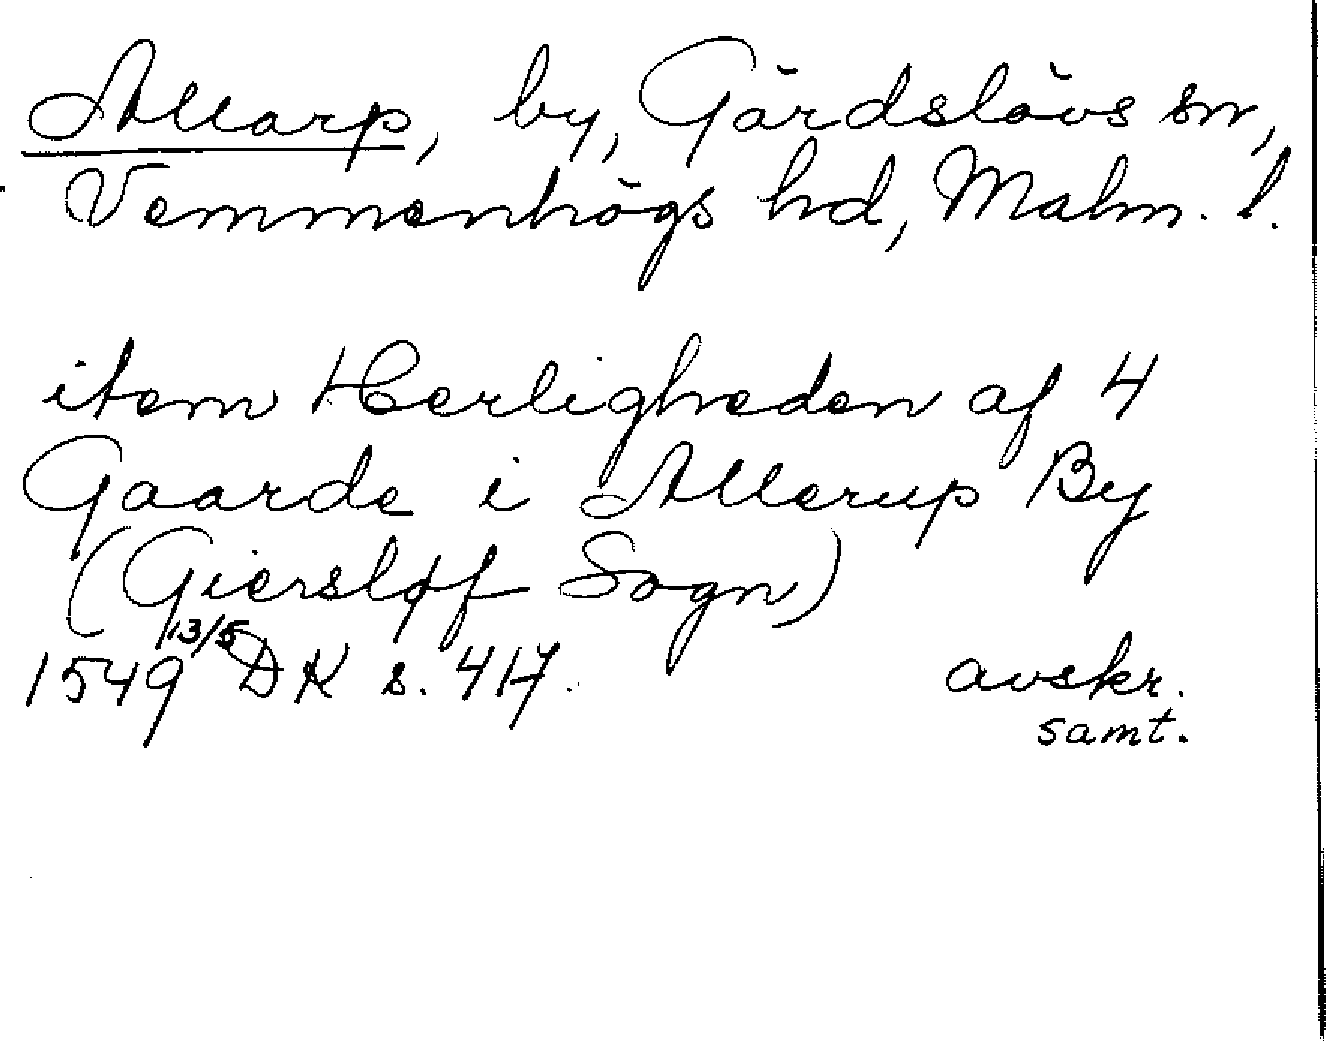 Allarp, by, Gärdslövs sn,
Vemmenhögs hd, Malm. l.
item Herligheden af 4
Gaarde i Allerup By
(Giersløf Sogn)
1549 13/5 DK s. 417.
avskr.
samt.